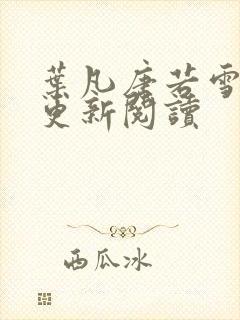 葉凡唐若雪
更新閱讀
西瓜冰